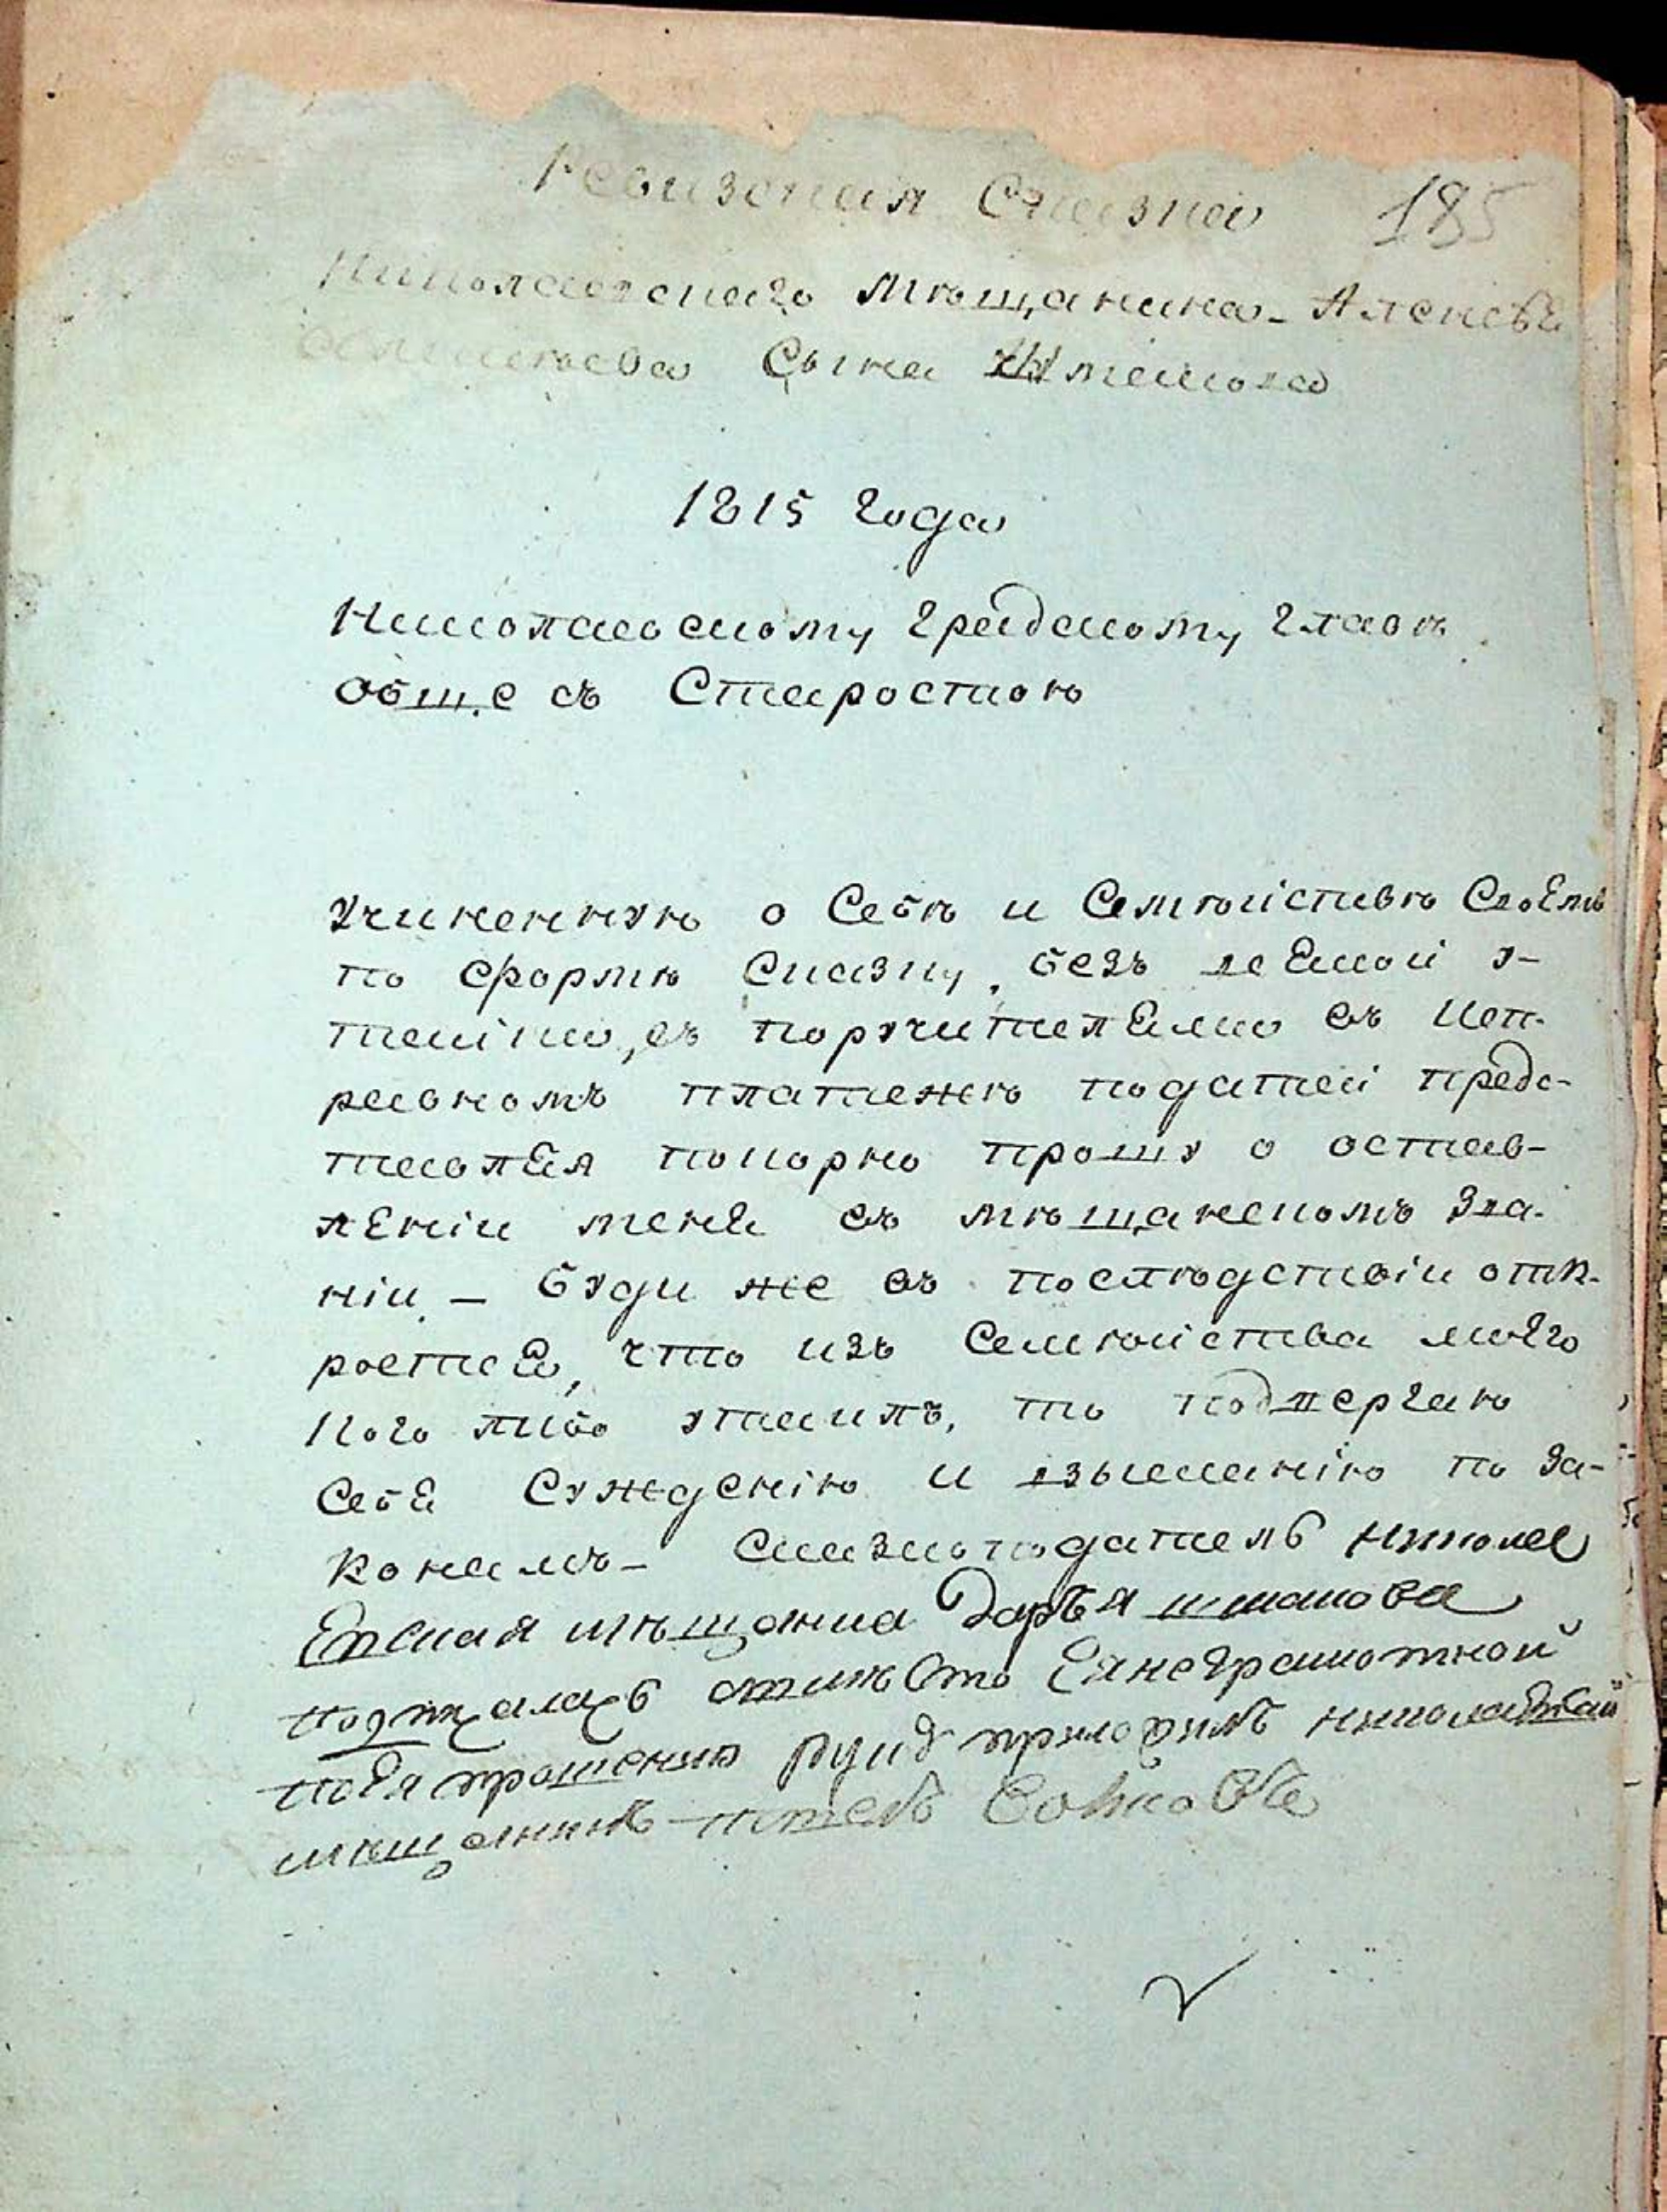 Ревизская Сказка 185
Николаевскаго мѣщанина - Алексѣя
Сына
1815 года
Николаевскому градскому главѣ
обще съ Старостою
Учиненную о Себѣ и Семѣйствѣ Своемъ
по формѣ Сказку, безъ всѣкой у-
тайки, съ поручителями въ исп-
равномъ платежѣ податей предс-
тавляя покорно прошу о остав-
леніи меня въ мѣщанскомъ зва-
ніи - буди же въ послѣдствіи отк-
роется, что изъ Семѣйства моего
кого либо утаилъ, то подвергаю
Себя Сужденію и взысканію по за-
конамъ - Сказкоподатель никола
Евская мѣщанка Дарья
неграмотной
поея прошению руку приложилъ николаевской
мѣщанинъ